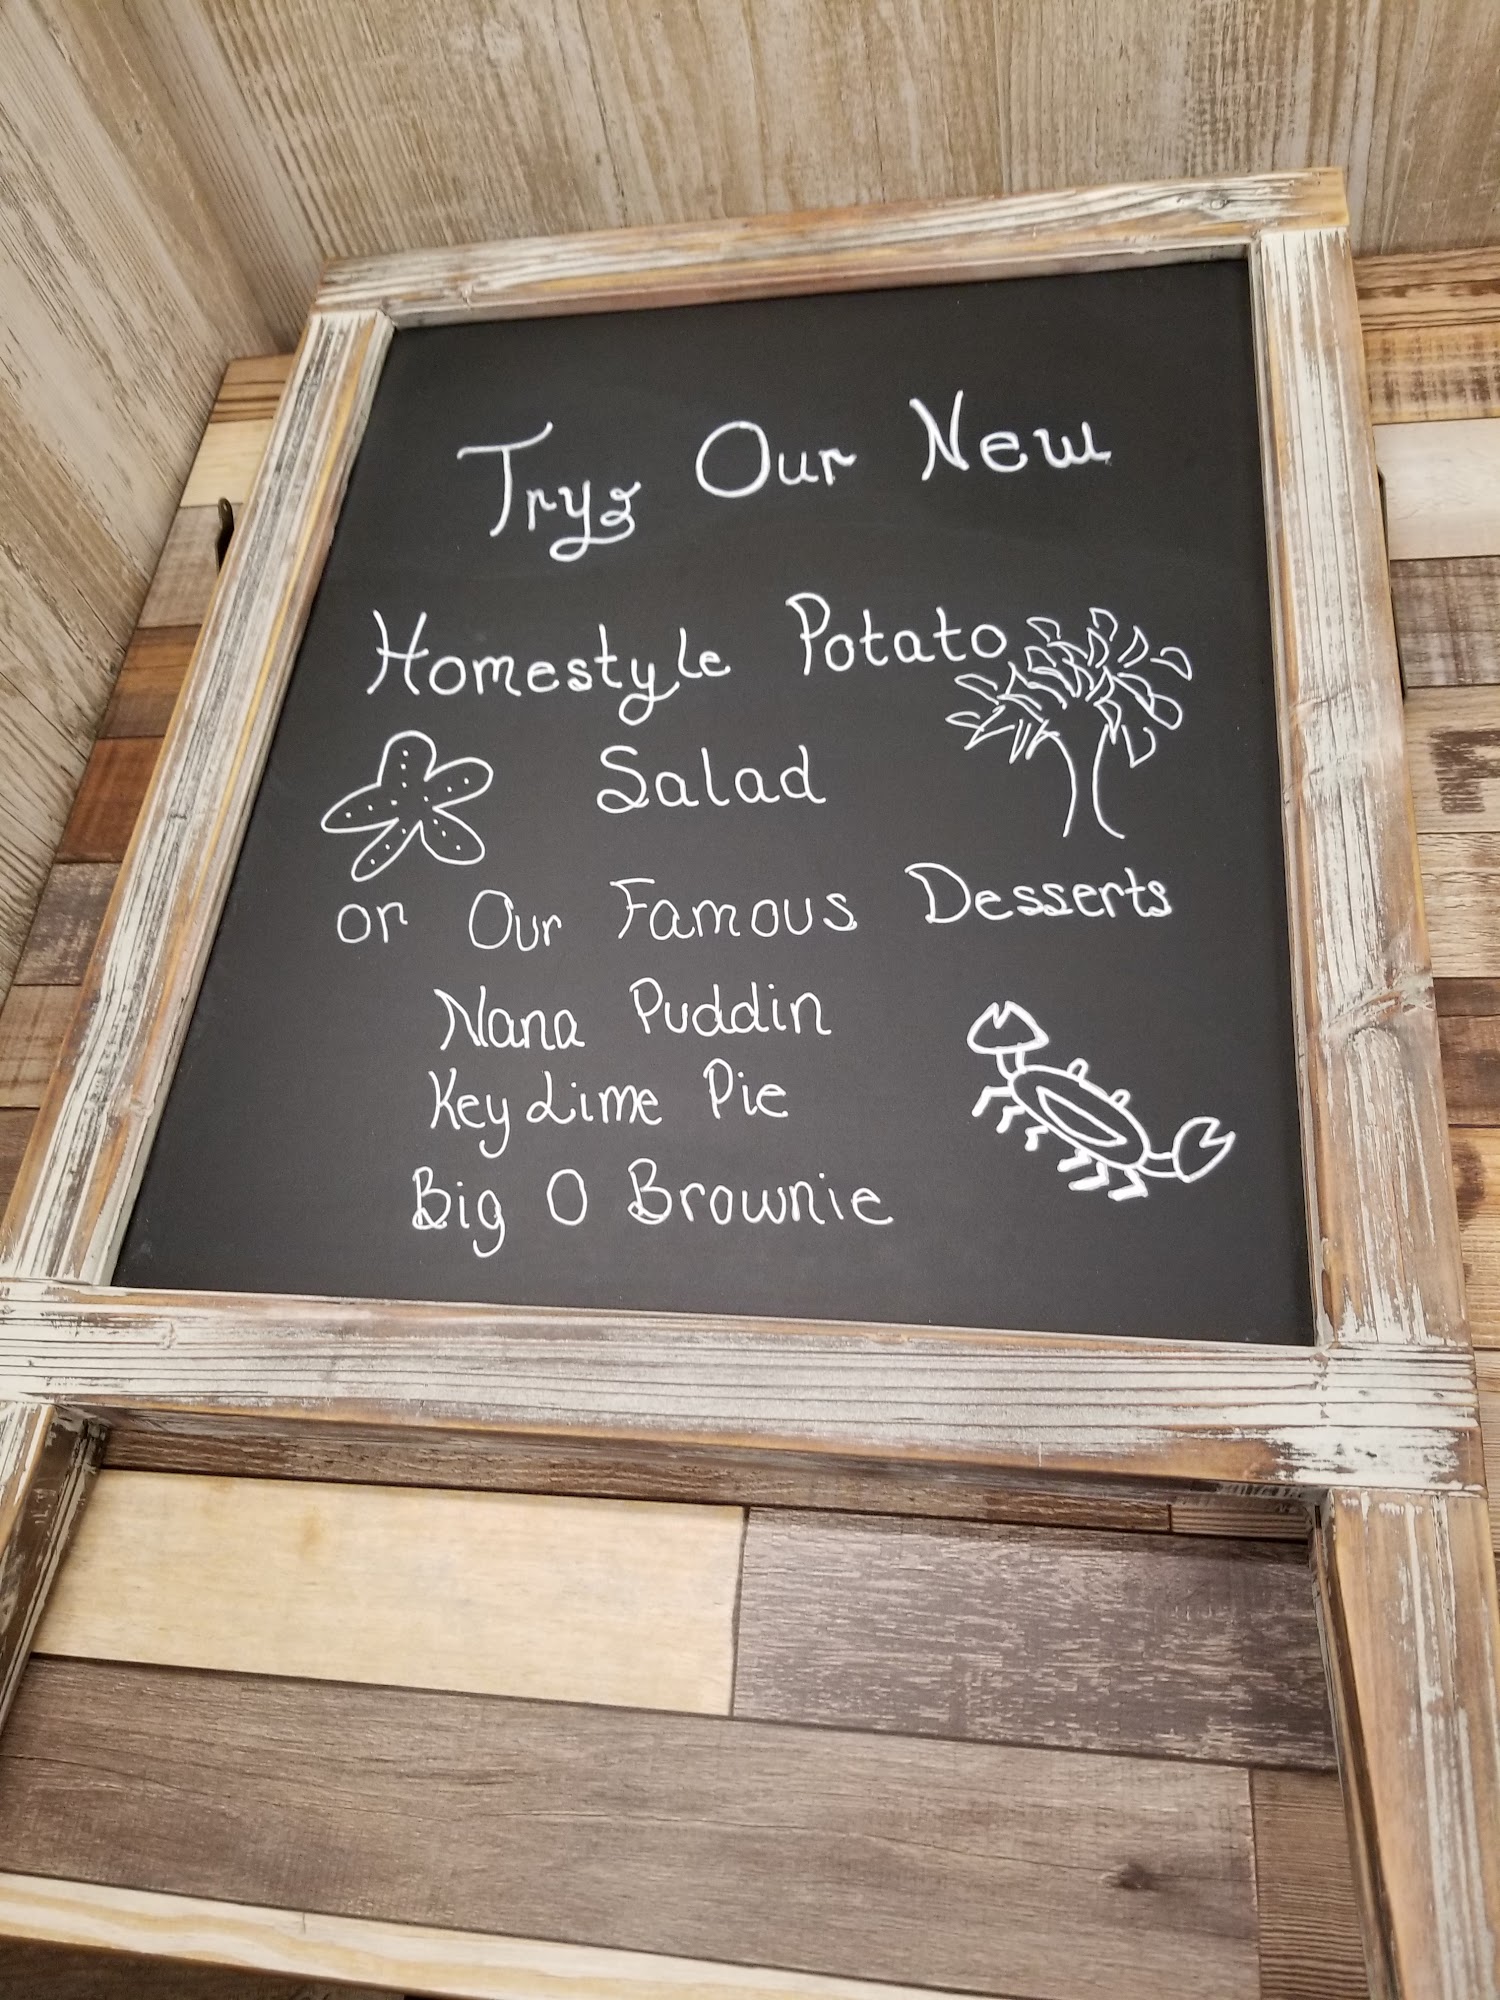 Try Our New
Homestyle Potato
Salad
or Our Famous Desserts
Nana Puddin
Key Lime Pie
Big O Brownie